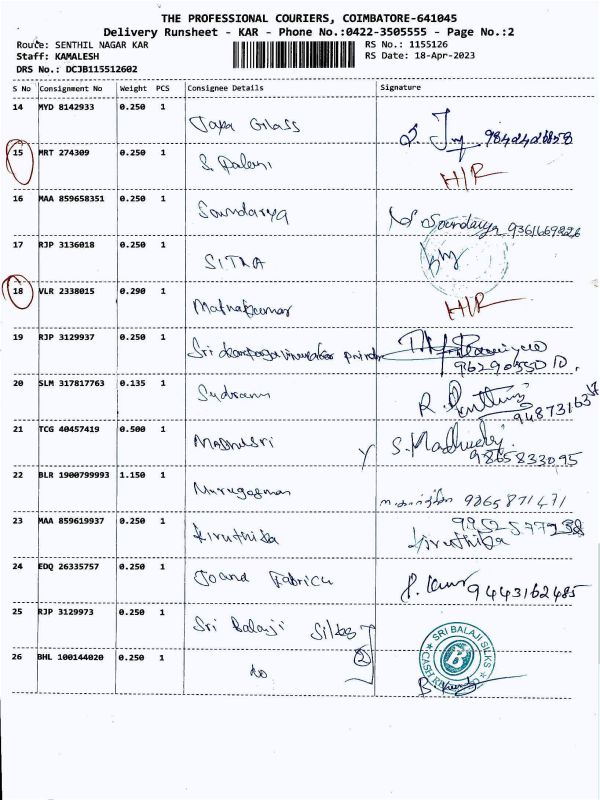 THE PROFESSIONAL COURIERS, COIMBATORE-641045
Delivery Runsheet - KAR - Phone No.:0422-3505555 - Page No.:2
Route: SENTHIL NAGAR KAR
RS No.: 1155126
Staff: KAMALESH
RS Date: 18-Apr-2023
DRS No.: DCJB115512602
S No Consignment No Weight PCS Consignee Details Signature
14 MYD 8142933 0.250 1 Glass
15 MRT 274309 0.250 1 S. Palani H/R
16 MAA 859658351 0.250 1 Soundarya Soundarya 9361669226
17 RJP 3136018 0.250 1 SITRA
18 VLR 2338015 0.290 1 H/R
19 RJP 3129937 0.250 1 Sri
20 SLM 317817763 0.135 1 R.
21 TCG 40457419 0.500 1 Madhusri S. 9865833095
22 BLR 1900799993 1.150 1 9865871471
23 MAA 859619937 0.250 1 Kiruthika 9952577238 Kiruthika
24 EDQ 26335757 0.250 1 9443162485
25 RJP 3129973 0.250 1 Sri Balaji Silks SRI BALAJI SILKS
26 BHL 100144020 0.250 1 do (2) B